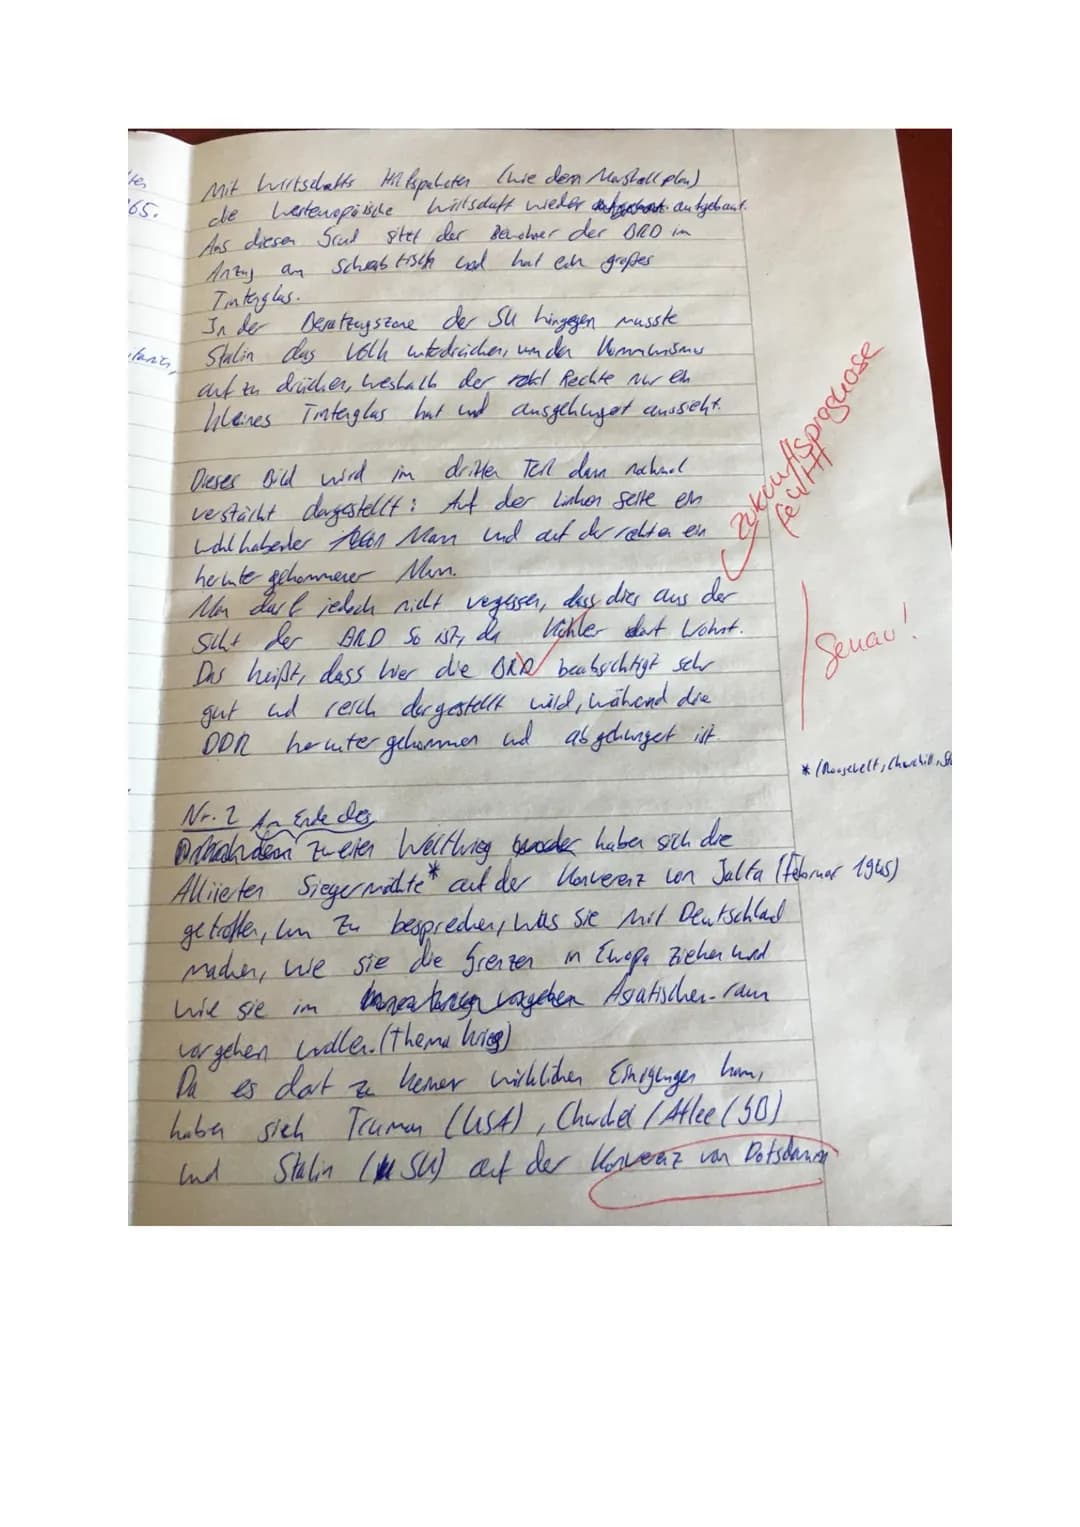 Mit Wirtschafts Hilfspaketen (wie dem Marshallplan)
die Westeuropäische Wirtschaft wieder aufgebaut.
Aus diesem Grund sitzt der Bewohner der BRD im
Anzug am Schreibtisch und hat ein großes
Tintenglas.
In der Besatzungszone der SU hingegen musste
Stalin das Volk unterdrücken, um den Kommunismus
auf zu drücken, weshalb der Rechte nur ein
kleines Tintenglas hat und ausgehungert aussieht.
Dieses Bild wird im dritten Teil dann nochmal
verstärkt dargestellt: Auf der linken Seite ein
wohlhabender Mann und auf der rechten ein
herunter gekommener Mann.
Zukunftsprognose
fehlt!
Man darf jedoch nicht vergessen, dass dies aus der
Sicht der BRD so ist, da Köhler dort wohnt.
Das heißt, dass hier die BRD beabsichtigt sehr
gut und reich dargestellt wird, während die
DDR herunter gekommen und abgehungert ist.
Genau!
* (Roosevelt, Churchill, Sta
Nr. 2 Am Ende des
zweiten Weltkrieg haben sich die
Alliierten Siegermächte* auf der Konverenz von Jalta (Februar 1945)
getroffen, um zu besprechen, was sie mit Deutschland
machen, wie sie die Grenzen in Europa ziehen und
wie sie im Asiatischen-raum
vorgehen wollen. (Thema Krieg)
Da es dort zu keiner wirklichen Einigungen kam,
haben sich Truman (USA), Churchil / Atlee (GB)
und Stalin (SU) auf der Konverenz von Potsdamm